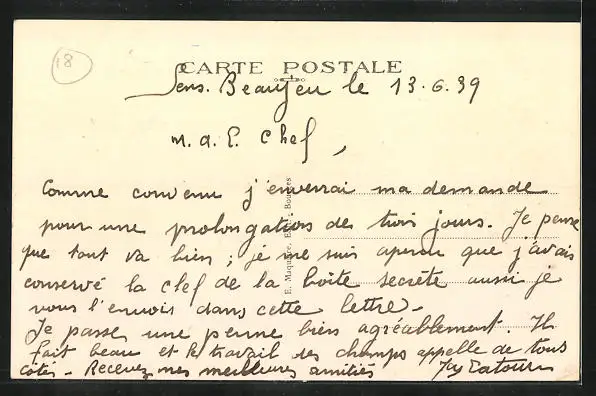 18
CARTE POSTALE
Sens. Beaujeu le 13.6.39
m. a. P. Chef,
Comme convenu j'enverrai ma demande
pour une prolongation de trois jours. Je pense
que tout va bien ; je me suis aperçu que j'avais
conservé la clef de la boîte secrète aussi je
vous l'envois dans cette lettre.
Je passe une perme bien agréablement. Il
fait beau et le travail des champs appelle de tous
côtés. Recevez mes meilleures amitiés
E. Maquaire, Edit., Bourges